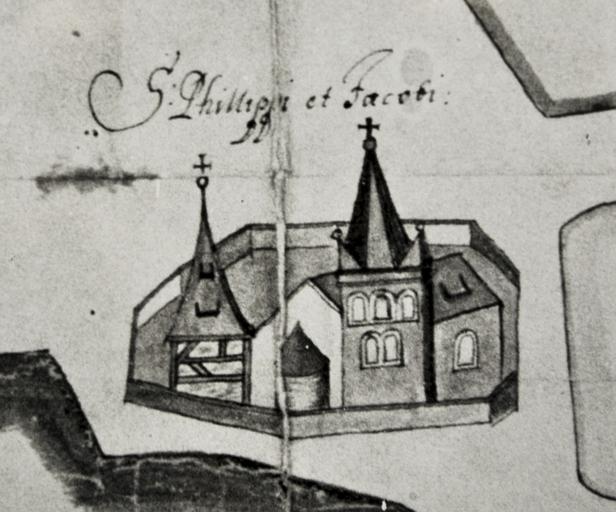 S: Phillippi et Jacobi: